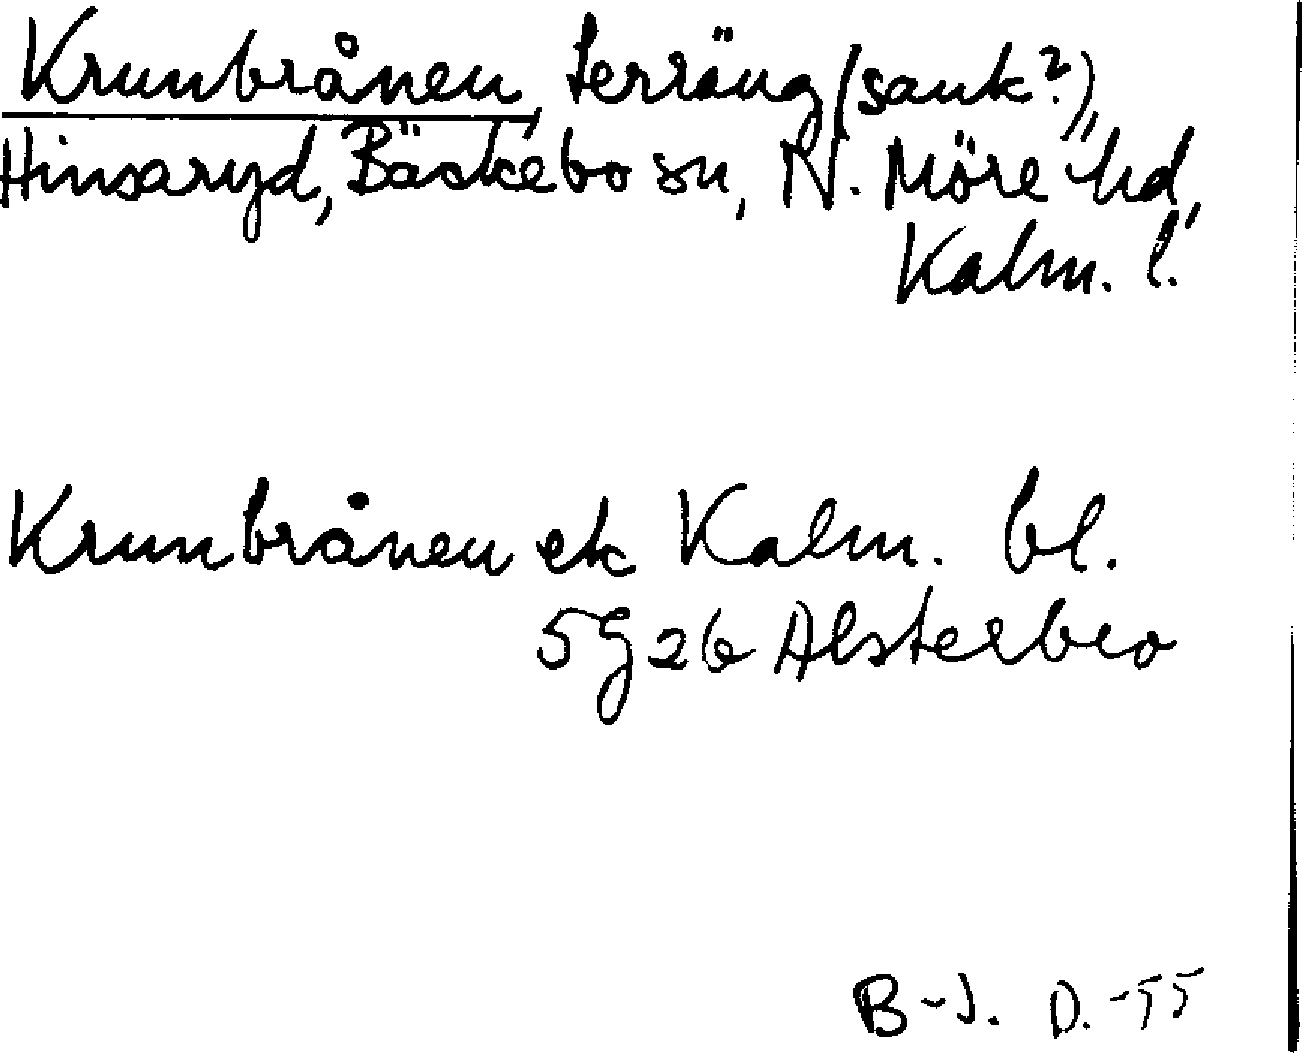 Krunbrånen, terräng (sank?),
Hinsaryd, Bäckebo sn, N. Möre hd,
Kalm. l.
Krunbrånen ek Kalm. bl.
5G 26 Alsterbro
B-J. D. -55